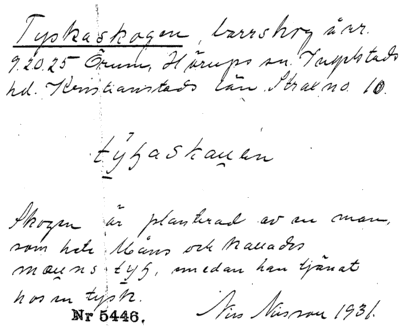 Tyskaskogen, barrskog å nr.
9.20.25 Örum, Hörups sn. Ingelstads
hd. Kristianstads län. Strax no. 10.
týsaskauen
Skogen är planterad av en man,
som hete Måns och kallades
mauns tysk, medan han tjänat
hos en tysk.
Nils Nilsson 1931.
Nr 5446.